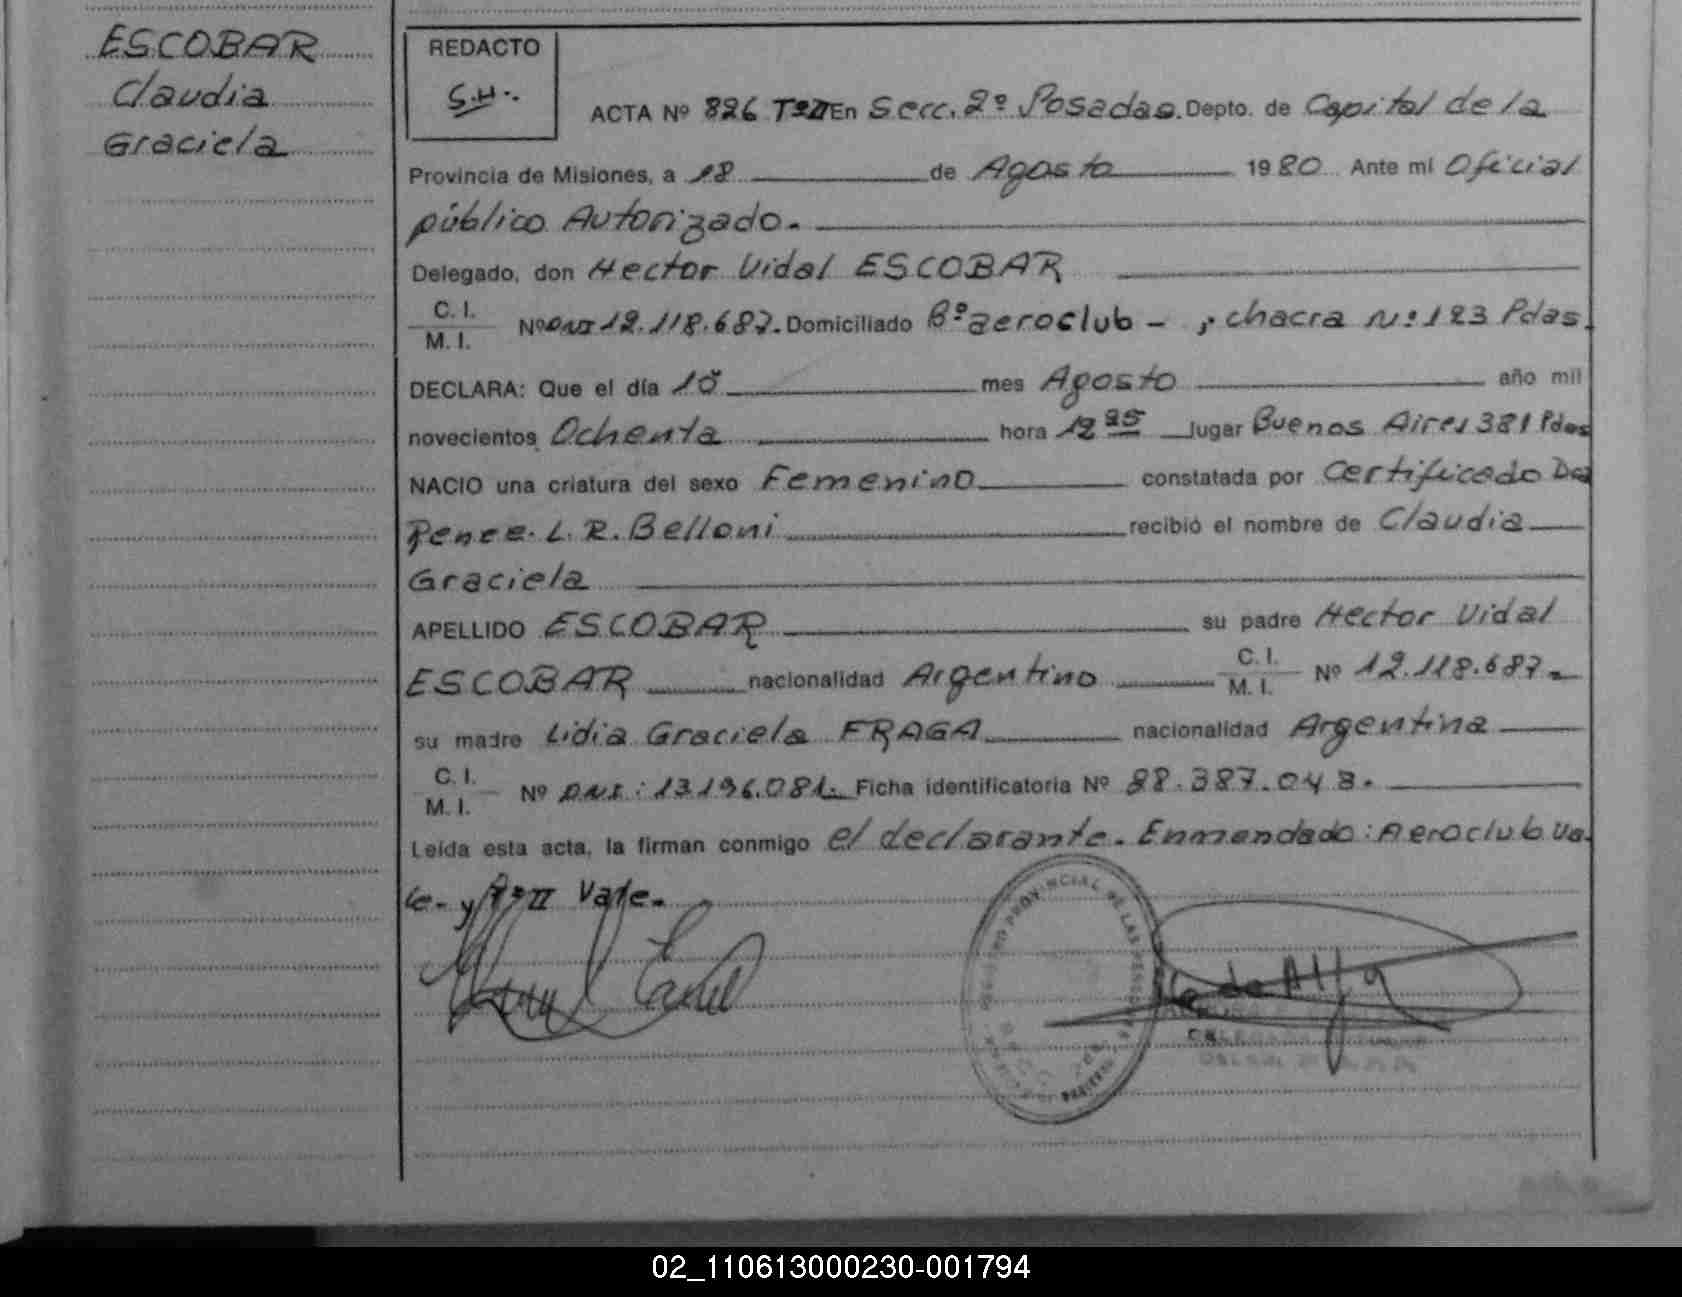 ESCOBAR
Claudia
Graciela
REDACTO
S.H.
ACTA Nº 826 TºII En Secc. 2º Posadas. Depto. de Capital de la
Provincia de Misiones, a 18 de Agosto 1980 Ante mi Oficial
público Autorizado.
Delegado, don Hector Vidal ESCOBAR
C. I.
M. I. Nº DNI 12.118.687. Domiciliado Bº aeroclub - chacra Nº 123 Pdas.
DECLARA: Que el día 10 mes Agosto año mil
novecientos Ochenta hora 12 25 lugar Buenos Aires 381 Pdas
NACIO una criatura del sexo Femenino constatada por Certificado Dra
Renee. L. R. Belloni recibió el nombre de Claudia
Graciela
APELLIDO ESCOBAR su padre Hector Vidal
ESCOBAR nacionalidad Argentino C. I. M. I. Nº 12.118.687.
su madre Lidia Graciela FRAGA nacionalidad Argentina
C. I.
M. I. Nº DNI: 13.196.081. Ficha identificatoria Nº 28.387.043.
Leída esta acta, la firman conmigo el declarante. Enmendado: Aeroclub Va.
le. y TºII Vale.
REGISTRO PROVINCIAL DE LAS PERSONAS
02_110613000230-001794